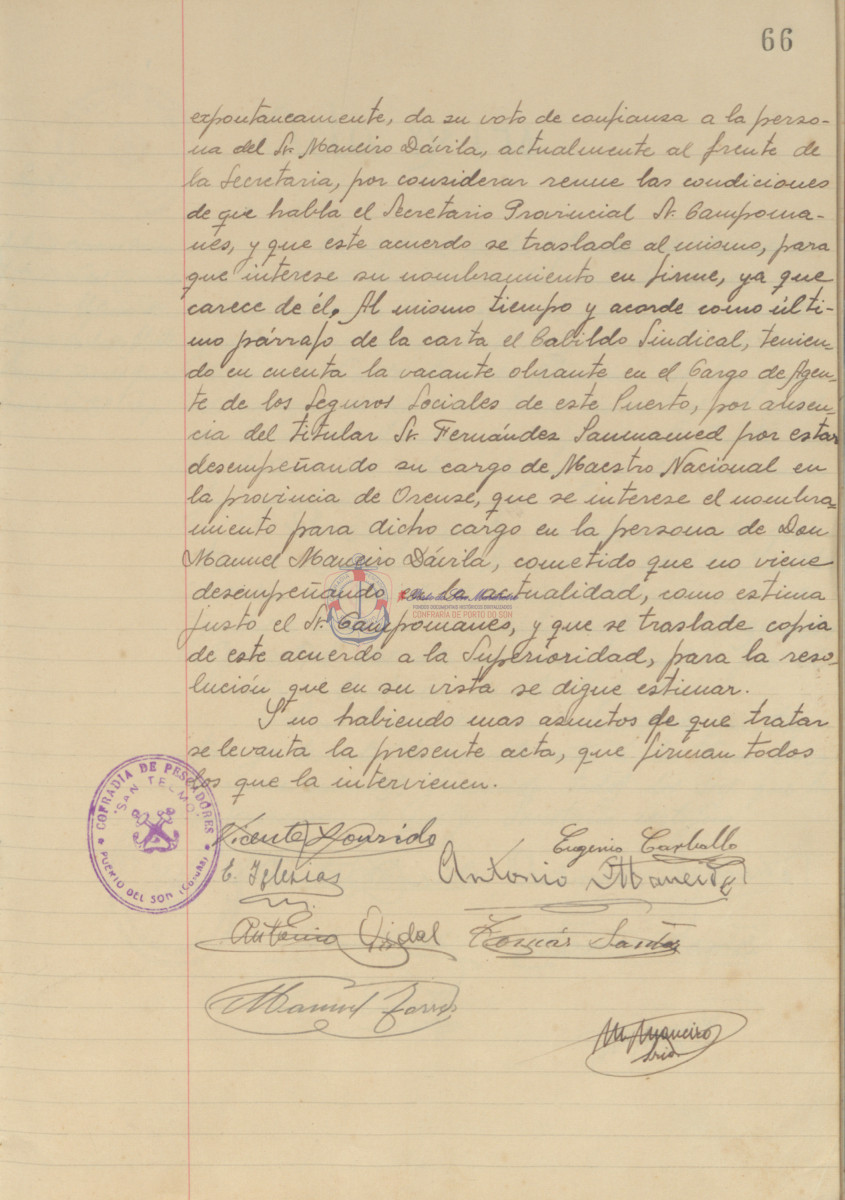 66
expontaneamente, da su voto de confianza a la perso-
na del Sr. Maneiro Dávila, actualmente al frente de
la Secretaria, por considerar reune las condiciones
de que habla el Secretario Provincial Sr. Campoma-
nes, y que este acuerdo se traslade al mismo, para
que interese su nombramiento en firme, ya que
carece de él. Al mismo tiempo y acorde como últi-
mo párrafo de la carta el Cabildo Sindical, tenien-
do en cuenta la vacante obrante en el Cargo de Agen-
te de los Seguros Sociales de este Puerto, por ausen-
cia del titular Sr. Fernández Sanmamed por estar
desempeñando su cargo de Maestro Nacional en
la provincia de Orense, que se interese el nombra-
miento para dicho cargo en la persona de Don
Manuel Maneiro Dávila, cometido que no viene
desempeñando en la actualidad, como estima
justo el Sr. Campomanes, y que se traslade copia
de este acuerdo a la Superioridad, para la reso-
lución que en su vista se digne estimar.
Y no habiendo mas asuntos de que tratar
se levanta la presente acta, que firman todos
los que la intervienen.
FONDOS DOCUMENTAIS HISTÓRICOS DIXITALIZADOS
CONFRARÍA DE PORTO DO SON
COFRADIA DE PESCADORES
"SAN TELMO"
PUERTO DEL SON (CORUÑA)
Vicente Lourido
Eugenio Carballo
E. Iglesias
Antonio Maneiro
Antonio Vidal
Tomás Santos
Manuel
M. Maneiro
Srio